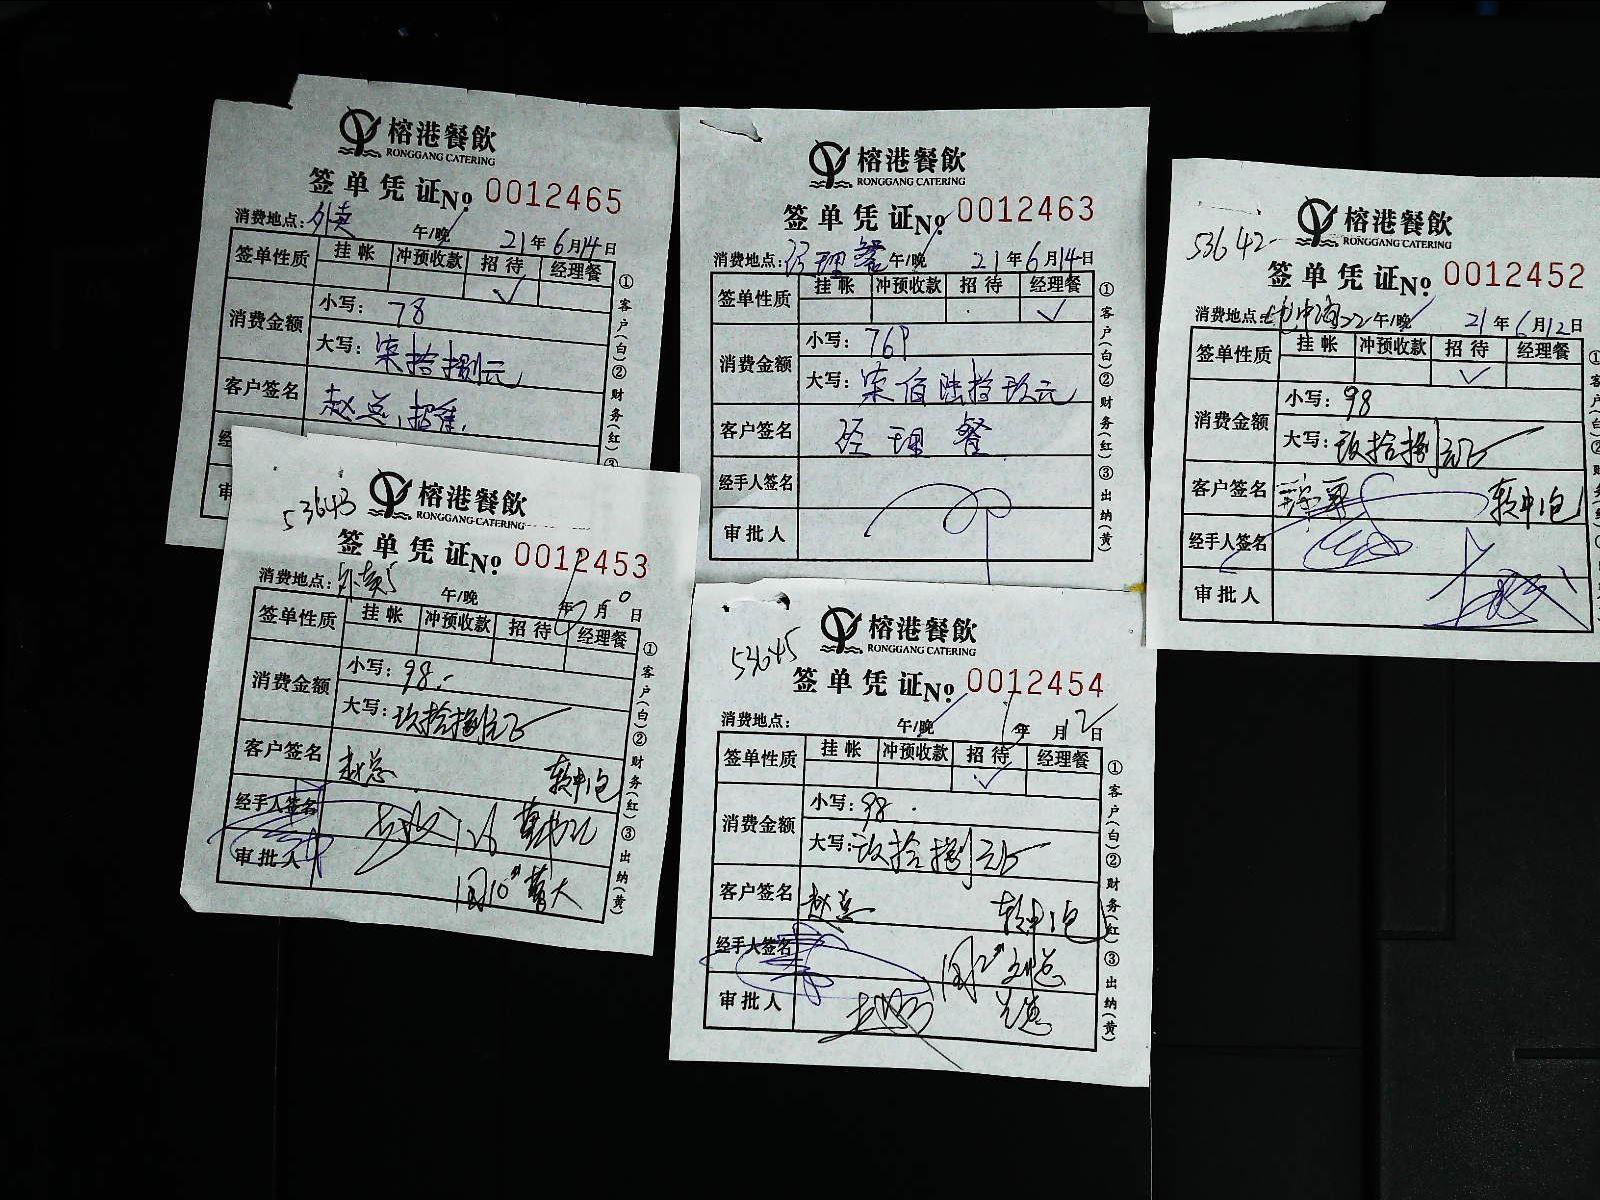 榕港餐飲
RONGGANG CATERING
签单凭证No. 0012465
消费地点: 外卖 午/晚 21年6月14日
签单性质 挂帐 冲预收款 招待 经理餐
✓
消费金额 小写: 78
大写: 柒拾捌元
客户签名 赵总,招待
经
审
①客户(白)②财务(红)③
榕港餐飲
RONGGANG CATERING
签单凭证No. 0012463
消费地点: 经理餐 午/晚 21年6月14日
签单性质 挂帐 冲预收款 招待 经理餐
✓
消费金额 小写: 769
大写: 柒佰陆拾玖元
客户签名 经理餐
经手人签名
审批人
①客户(白)②财务(红)③出纳(黄)
53642
榕港餐飲
RONGGANG CATERING
签单凭证No. 0012452
消费地点: 午/晚 21年6月12日
签单性质 挂帐 冲预收款 招待 经理餐
✓
消费金额 小写: 98
大写: 玖拾捌元正
客户签名 软中1包
经手人签名
审批人
53643
榕港餐飲
RONGGANG CATERING
签单凭证No. 0012453
消费地点: 外卖 午/晚 年 月 日
签单性质 挂帐 冲预收款 招待 经理餐
消费金额 小写: 98.-
大写: 玖拾捌元正
客户签名 赵总 软中1包
经手人签名
审批人
①客户(白)②财务(红)③出纳(黄)
53645
榕港餐飲
RONGGANG CATERING
签单凭证No. 0012454
消费地点: 午/晚 年 月12日
签单性质 挂帐 冲预收款 招待 经理餐
✓
消费金额 小写: 98.
大写: 玖拾捌元正
客户签名 赵总 软中1包
经手人签名
审批人
①客户(白)②财务(红)③出纳(黄)